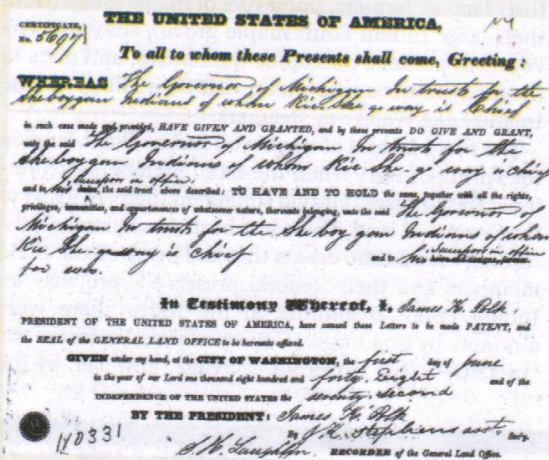 THE UNITED STATES OF AMERICA,
CERTIFICATE,
No. 5697
To all to whom these Presents shall come, Greeting:
WHEREAS The Governor of Michigan In trusts for the
Sheboygan Indians of whom Kie She go way is Chief
in such case made and provided, HAVE GIVEN AND GRANTED, and by these presents DO GIVE AND GRANT,
unto the said The Governor of Michigan In trusts for the
Sheboygan Indians of whom Kie She go way is chief
Sucessors in office
and to his heirs, the said tract above described: TO HAVE AND TO HOLD the same, together with all the rights,
privileges, immunities, and appurtenances of whatsoever nature, thereunto belonging, unto the said The Governor of
Michigan In trusts for the Sheboygan Indians of whom
Kie She go way is chief and to his Sucessors in office
for ever.
In Testimony Whereof, I, James K. Polk
PRESIDENT OF THE UNITED STATES OF AMERICA, have caused these Letters to be made PATENT, and
the SEAL of the GENERAL LAND OFFICE to be hereunto affixed.
GIVEN under my hand, at the CITY OF WASHINGTON, the first day of June
in the year of our Lord one thousand eight hundred and forty. Eight and of the
INDEPENDENCE OF THE UNITED STATES the seventy. second
BY THE PRESIDENT: James K. Polk
By J. K. Stephens asst. Sec'y.
110331
S. H. Laughlin RECORDER of the General Land Office.